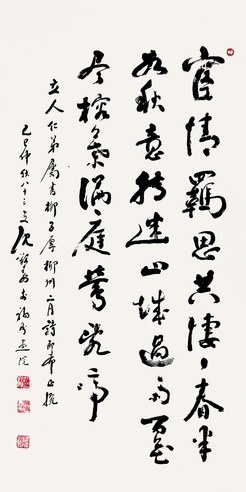 宦情羈思共悽悽春半
如秋意轉迷山城過雨百花
尽榕葉滿庭鶯亂啼
立人仁弟属书柳子厚柳州二月詩即希正捥
己巳仲秋八十三叟沈